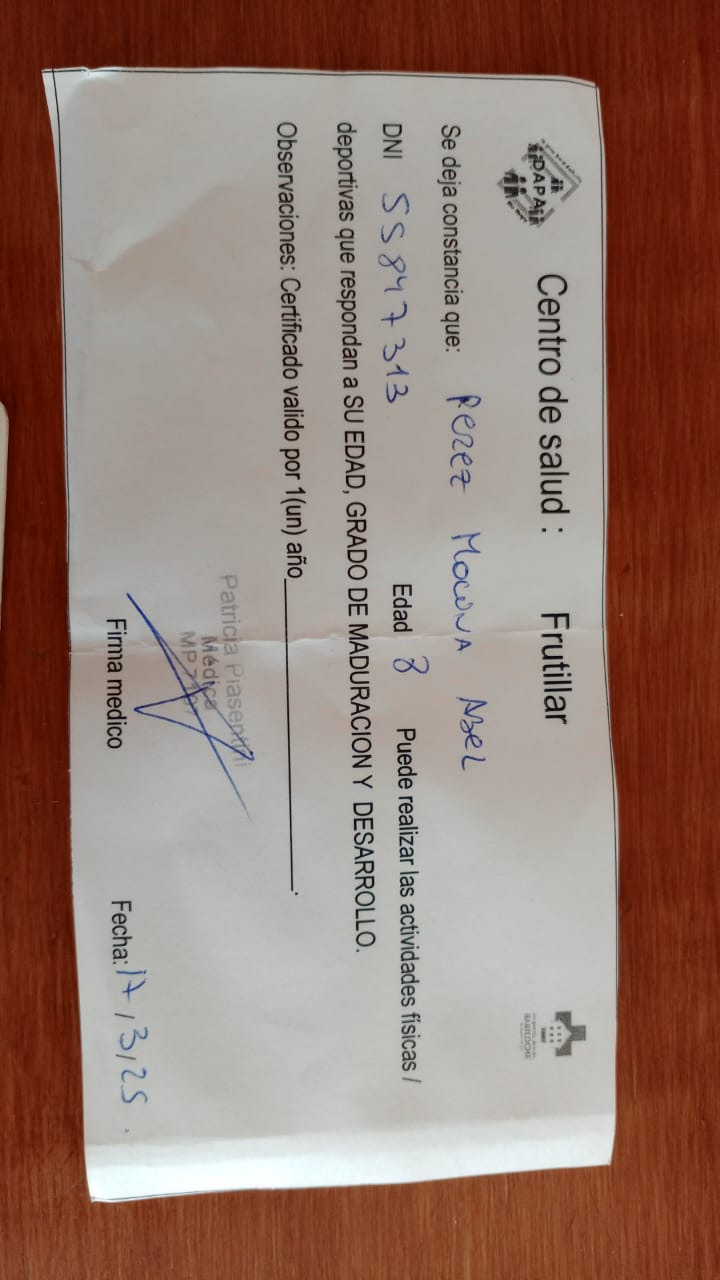 DAPA
Centro de salud : Frutillar
BARILOCHE
Se deja constancia que: Perez Mocona Abel
DNI 55847313 Edad 8 Puede realizar las actividades físicas /
deportivas que respondan a SU EDAD, GRADO DE MADURACION Y DESARROLLO.
Observaciones: Certificado valido por 1(un) año
Patricia Piasentini
Médica
MP
Firma medico Fecha: 17/3/25